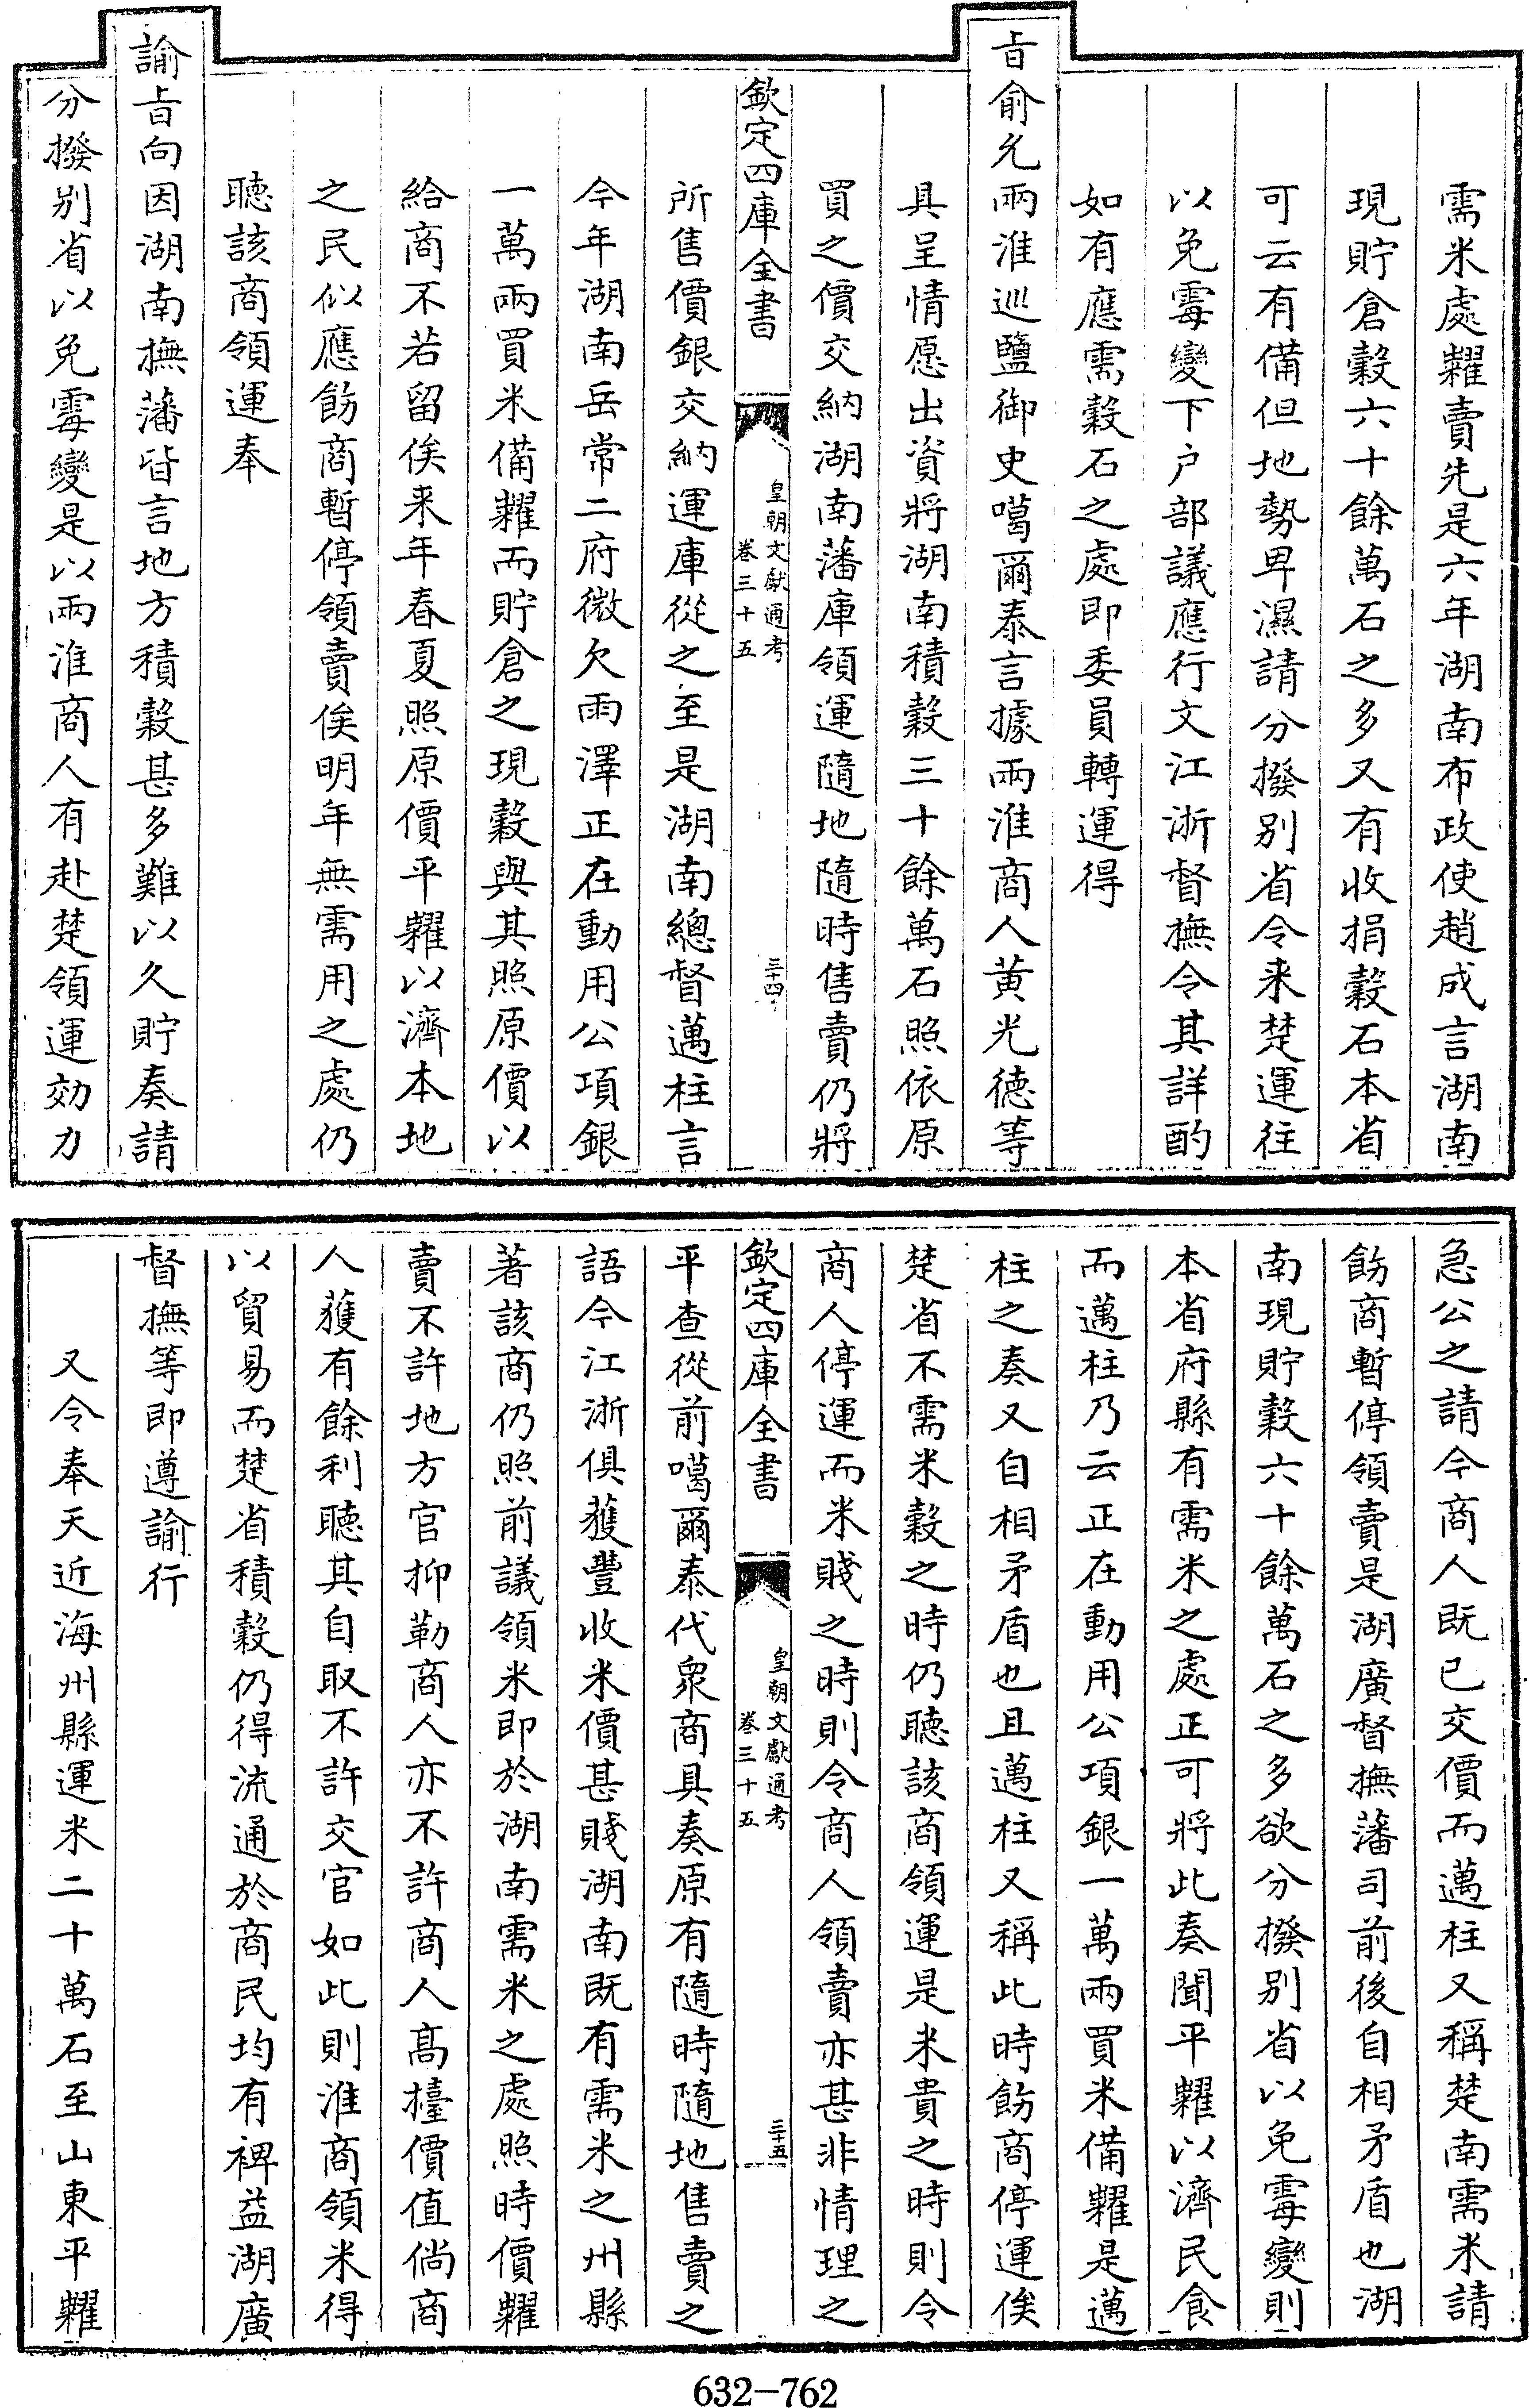 需米處糶賣先是六年湖南布政使趙成言湖南
現貯倉穀六十餘萬石之多又有收捐穀石本省
可云有備但地勢卑濕請分撥别省令来楚運往
以免霉變下户部議應行文江浙督撫令其詳酌
如有應需穀石之處即委員轉運得
㫖俞允兩淮巡鹽御史噶爾泰言據兩淮商人黄光德等
具呈情愿出資將湖南積穀三十餘萬石照依原
買之價交納湖南藩庫領運隨地隨時售賣仍將
欽定四庫全書
皇朝文獻通考
卷三十五
三十四
所售價銀交納運庫從之至是湖南總督邁柱言
今年湖南岳常二府微欠雨澤正在動用公項銀
一萬兩買米備糶而貯倉之現穀與其照原價以
給商不若留俟来年春夏照原價平糶以濟本地
之民似應飭商暫停領賣俟明年無需用之處仍
聽該商領運奉
諭㫖向因湖南撫藩皆言地方積穀甚多難以久貯奏請
分撥别省以免霉變是以兩淮商人有赴楚領運効力
急公之請今商人既已交價而邁柱又稱楚南需米請
飭商暫停領賣是湖廣督撫藩司前後自相矛盾也湖
南現貯穀六十餘萬石之多欲分撥别省以免霉變則
本省府縣有需米之處正可將此奏聞平糶以濟民食
而邁柱乃云正在動用公項銀一萬兩買米備糶是邁
柱之奏又自相矛盾也且邁柱又稱此時飭商停運俟
楚省不需米穀之時仍聽該商領運是米貴之時則令
商人停運而米賤之時則令商人領賣亦甚非情理之
欽定四庫全書
皇朝文獻通考
卷三十五
三十五
平查從前噶爾泰代衆商具奏原有隨時隨地售賣之
語今江浙俱獲豐收米價甚賤湖南既有需米之州縣
著該商仍照前議領米即於湖南需米之處照時價糶
賣不許地方官抑勒商人亦不許商人髙擡價值倘商
人獲有餘利聽其自取不許交官如此則淮商領米得
以貿易而楚省積穀仍得流通於商民均有裨益湖廣
督撫等即遵諭行
又令奉天近海州縣運米二十萬石至山東平糶
632-762